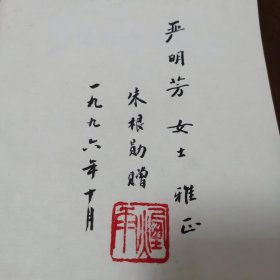 严明芳女士雅正
朱根勋赠
一九九六年十月